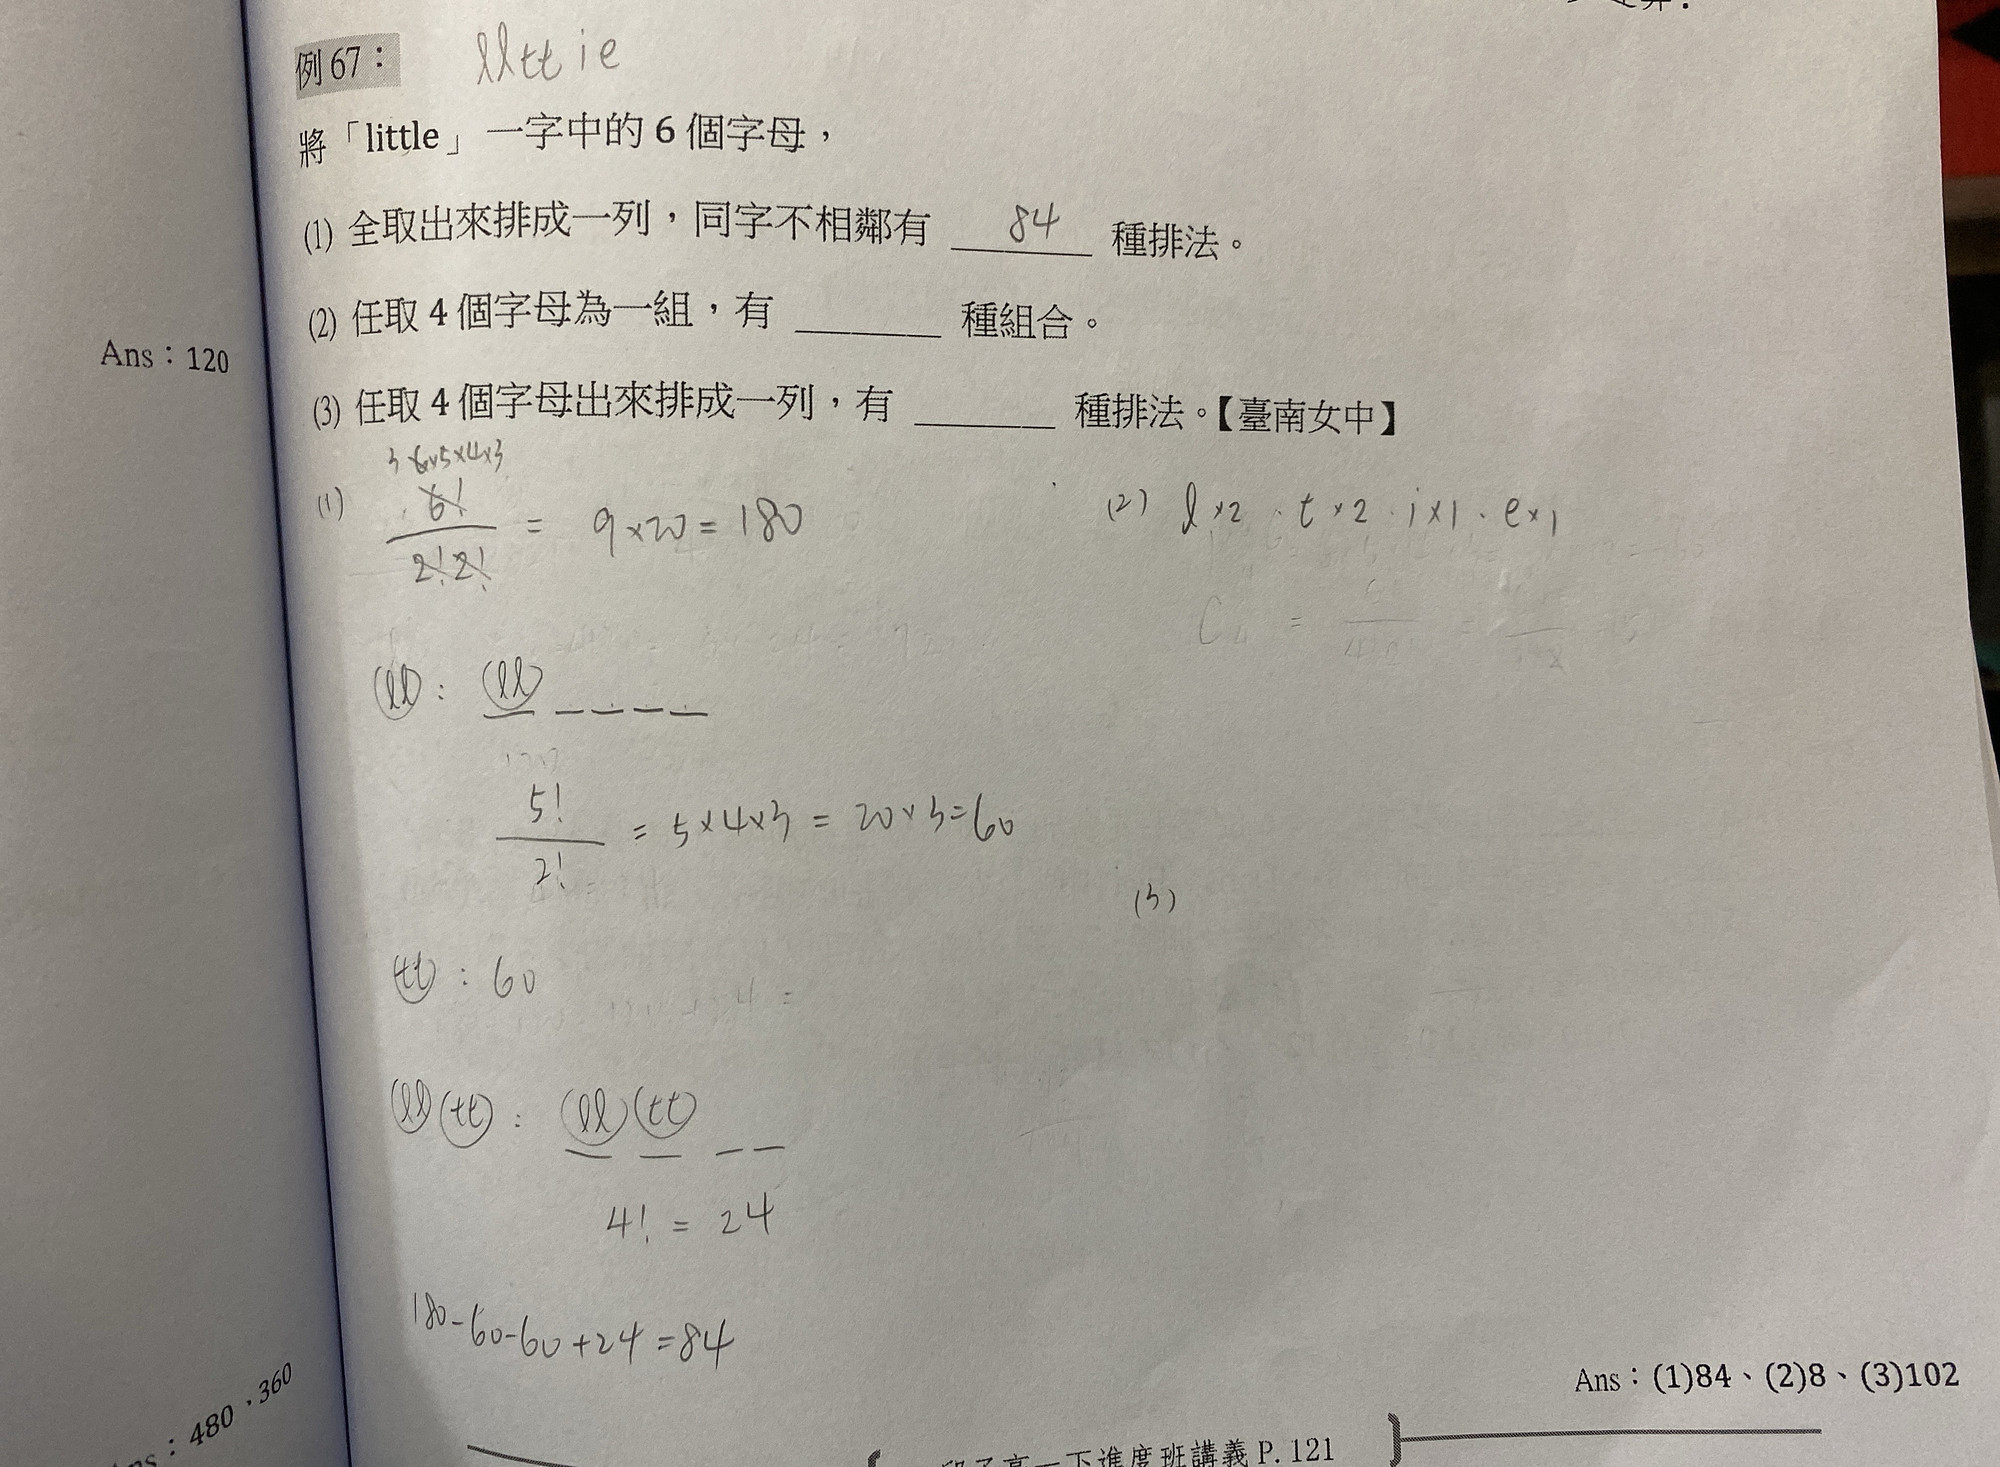 例67：
llttie
將「little」一字中的6個字母，
(1) 全取出來排成一列，同字不相鄰有 84 種排法。
(2) 任取4個字母為一組，有 ______ 種組合。
(3) 任取4個字母出來排成一列，有 ______ 種排法。【臺南女中】
Ans：120
3 6×5×4×3
(1) 6!/2!2! = 9×20 = 180
(2) l×2 . t×2 . i×1 . e×1
ll : ll _ _ _ _
5!/2! = 5×4×3 = 20×3=60
(3)
tt : 60
ll tt : ll tt _ _
4! = 24
180-60-60+24=84
Ans：(1)84、(2)8、(3)102
：480、360
一下進度班講義 P. 121